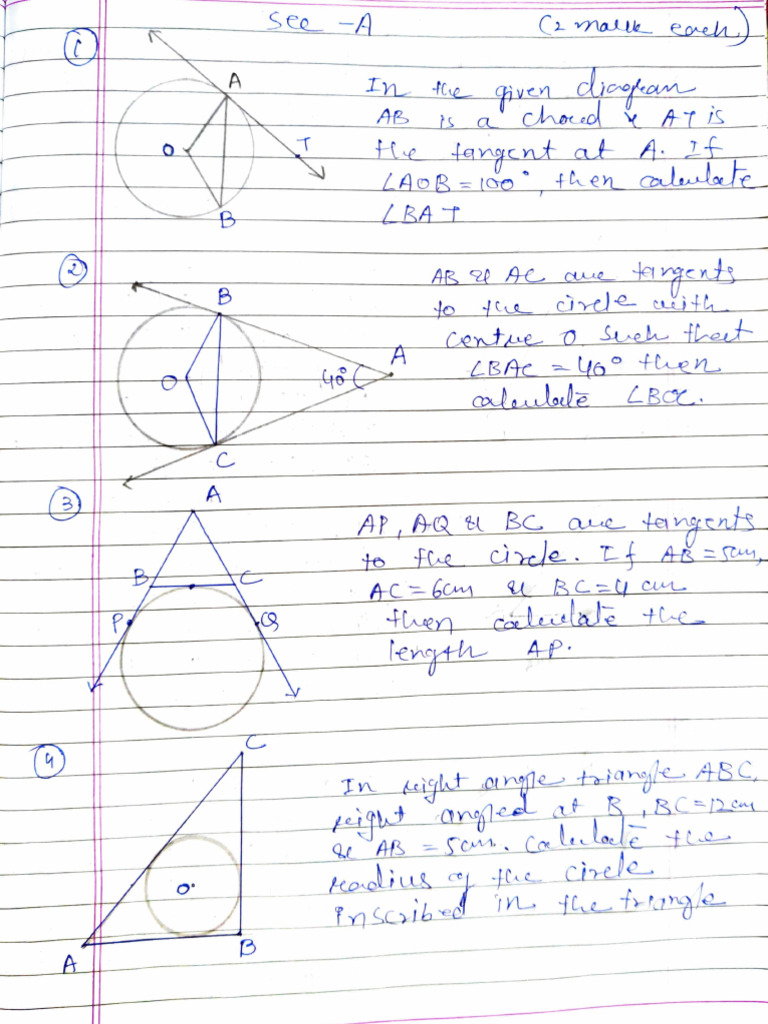 Sec - A (2 mark each)
1
A
O
T
B
In the given diagram
AB is a chord & AT is
the tangent at A. If
∠AOB = 100°, then calculate
∠BAT
2
B
O
40°
A
C
AB & AC are tangents
to the circle with
centre O such that
∠BAC = 40° then
calculate ∠BCO.
3
A
B C
P Q
AP, AQ & BC are tangents
to the circle. If AB = 5cm,
AC = 6cm & BC = 4 cm
then calculate the
length AP.
4
C
O
A B
In right angle triangle ABC,
right angled at B, BC = 12cm
& AB = 5cm. Calculate the
radius of the circle
inscribed in the triangle